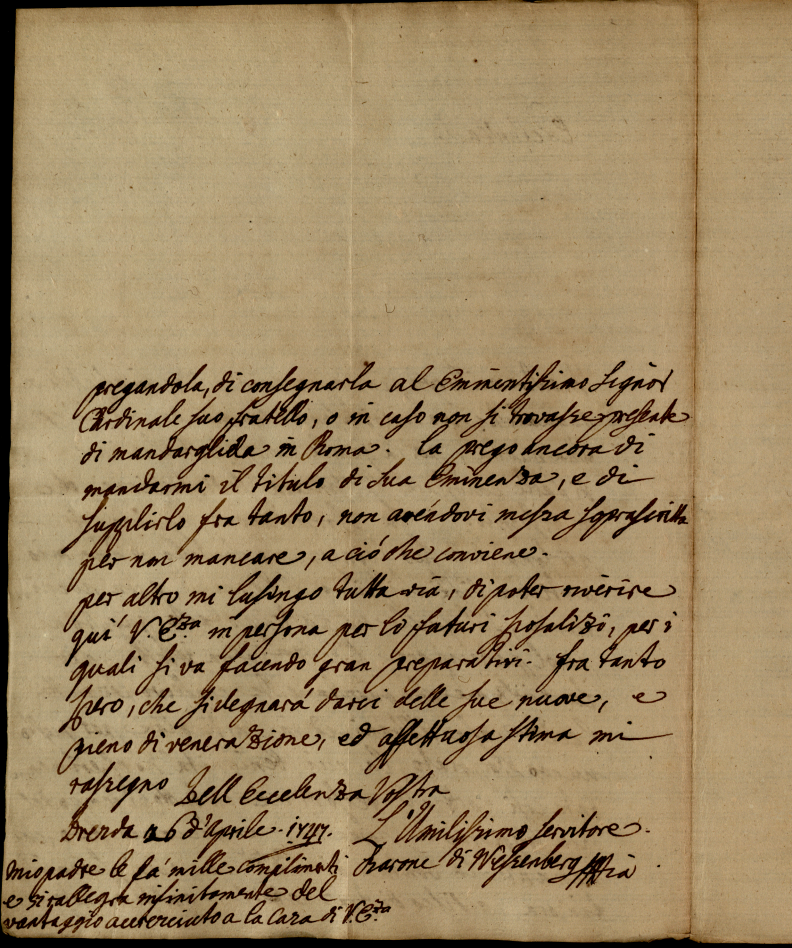 pregandola, di consegnarla al Eminentissimo Signor
Cardinale suo fratello, o in caso non si trovasse presente
di mandarglida in Roma. la prego ancora di
mandarmi il titulo di sua Eminenza, e di
supplirlo fra tanto, non avéndovi messa soprascritta
per non mancare, a ció che conviene.
per altro mi lusingo tutta via, di poter riverire
qui V. E.za in persona per li futuri sposalizi, per i
quali si va facendo gran preparativi. fra tanto
spero, che si degnará darci delle sue nuove, e
pieno di venerazione, ed affettuosa stima mi
rassegno Dell Eccelenza Vostra
Drezda a 6 d'Aprile. 1747. L'Umilissimo servitore.
Barone di Wessenberg
mio padre le fa mille complimenti
e si rallegra infinitamente del
vantaggio accresciuto a la casa di V. E.za